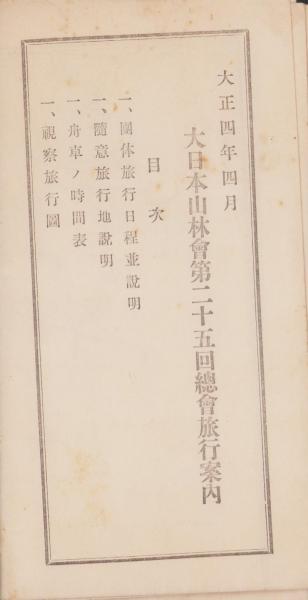 大正四年四月
大日本山林會第二十五回總會旅行案內
目次
一、團体旅行日程並說明
一、隨意旅行地說明
一、舟車ノ時間表
一、視察旅行圖